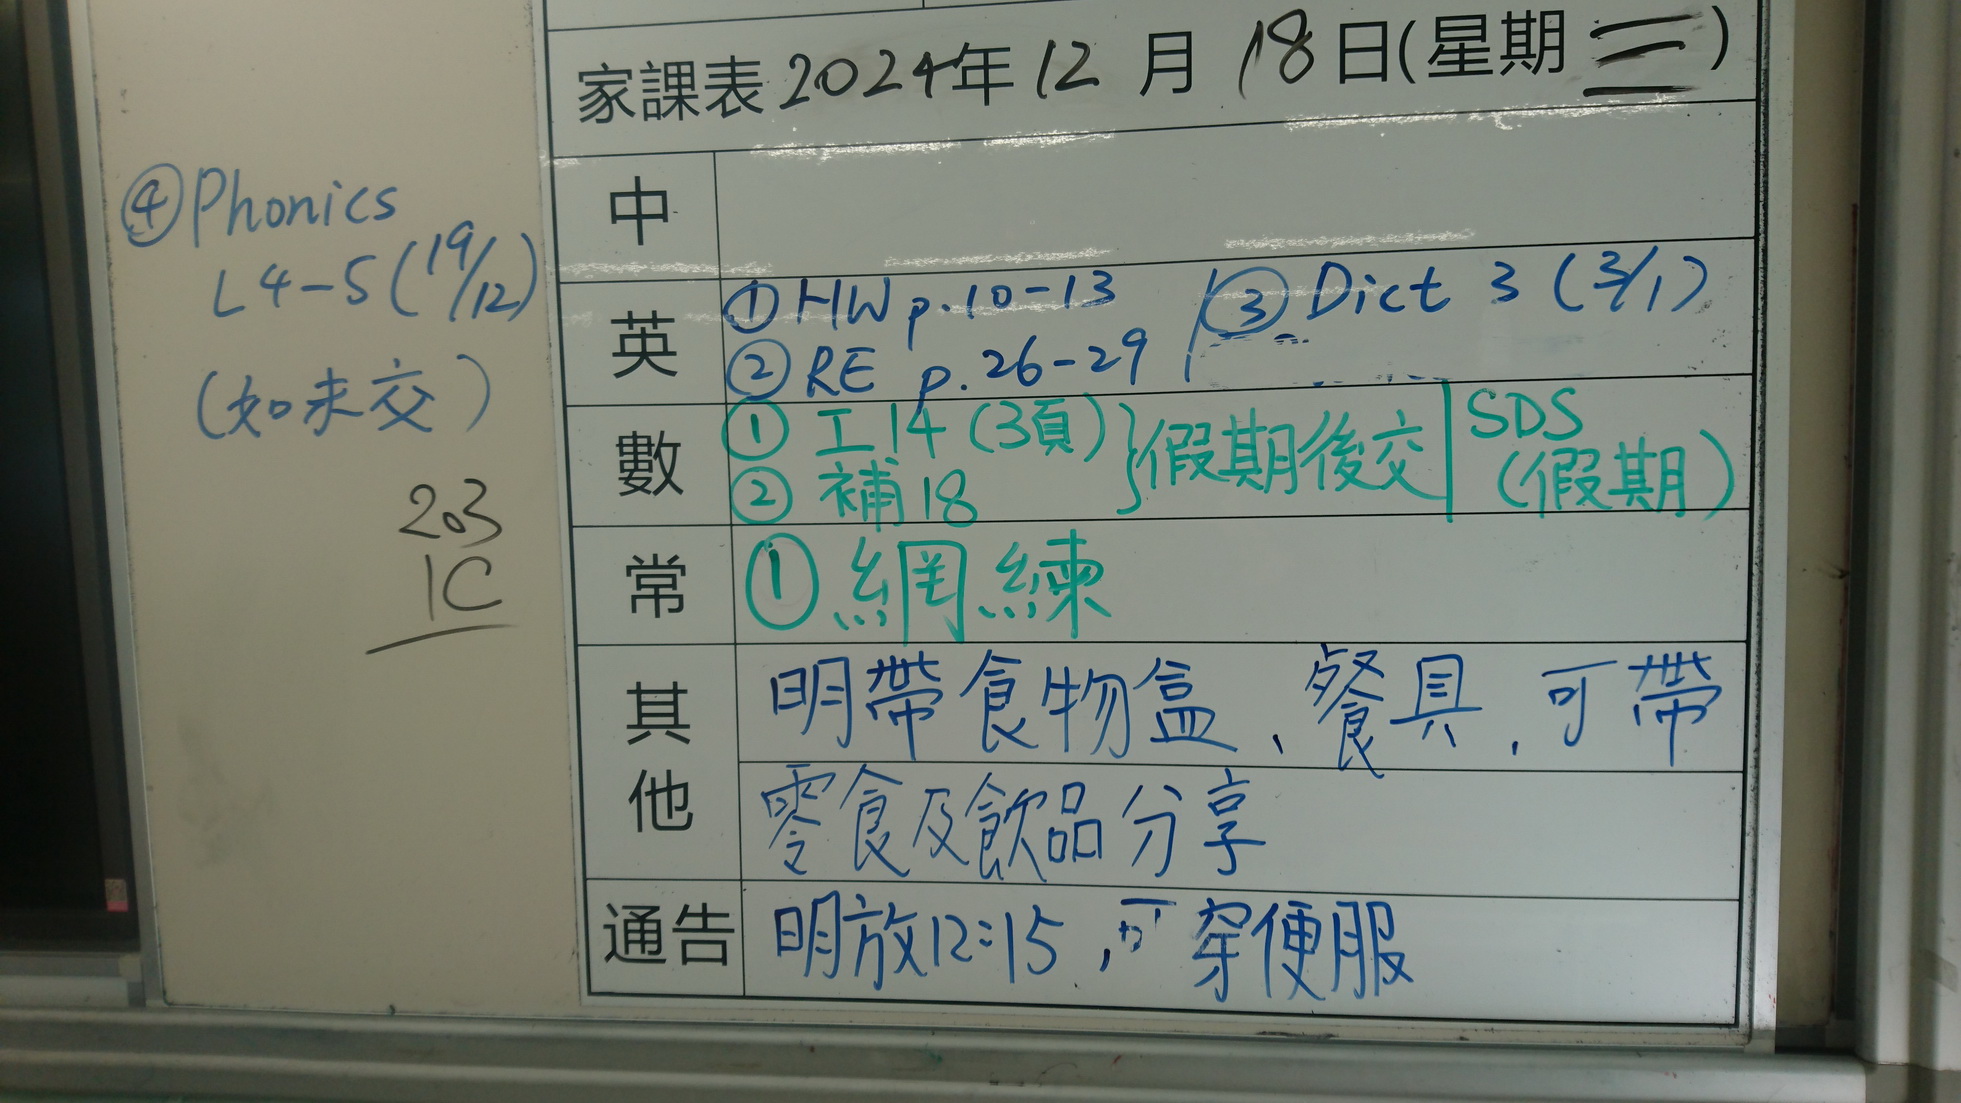 家課表 2024年 12 月 18日(星期三)
中
英
① HW p.10-13
② RE p.26-29
③ Dict 3 (3/1)
④ Phonics
L4-5 (19/12)
(如未交)
203
1C
數
① 工14 (3頁)
② 補18
}假期後交
SDS
(假期)
常
① 網練
其他
明帶食物盒、餐具,可帶
零食及飲品分享
通告
明放12:15,可穿便服